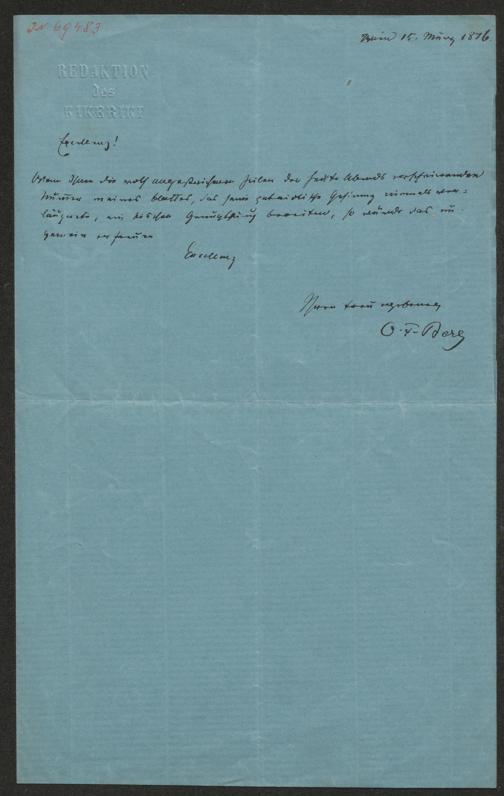 I.N. 69483
Wien 15. März 1876
REDAKTION
des
KIKERIKI
Excellenz!
Wenn Ihnen die roth angestrichenen Zeilen der heute Abends erscheinenden
Nummer meines Blattes, das seine patriotische Gesinnung niemals ver=
läugnete, ein bischen Genugthuung bereiten, so würde das un
gemein erfreuen
Excellenz
Ihren treu ergebenen
O. F. Berg